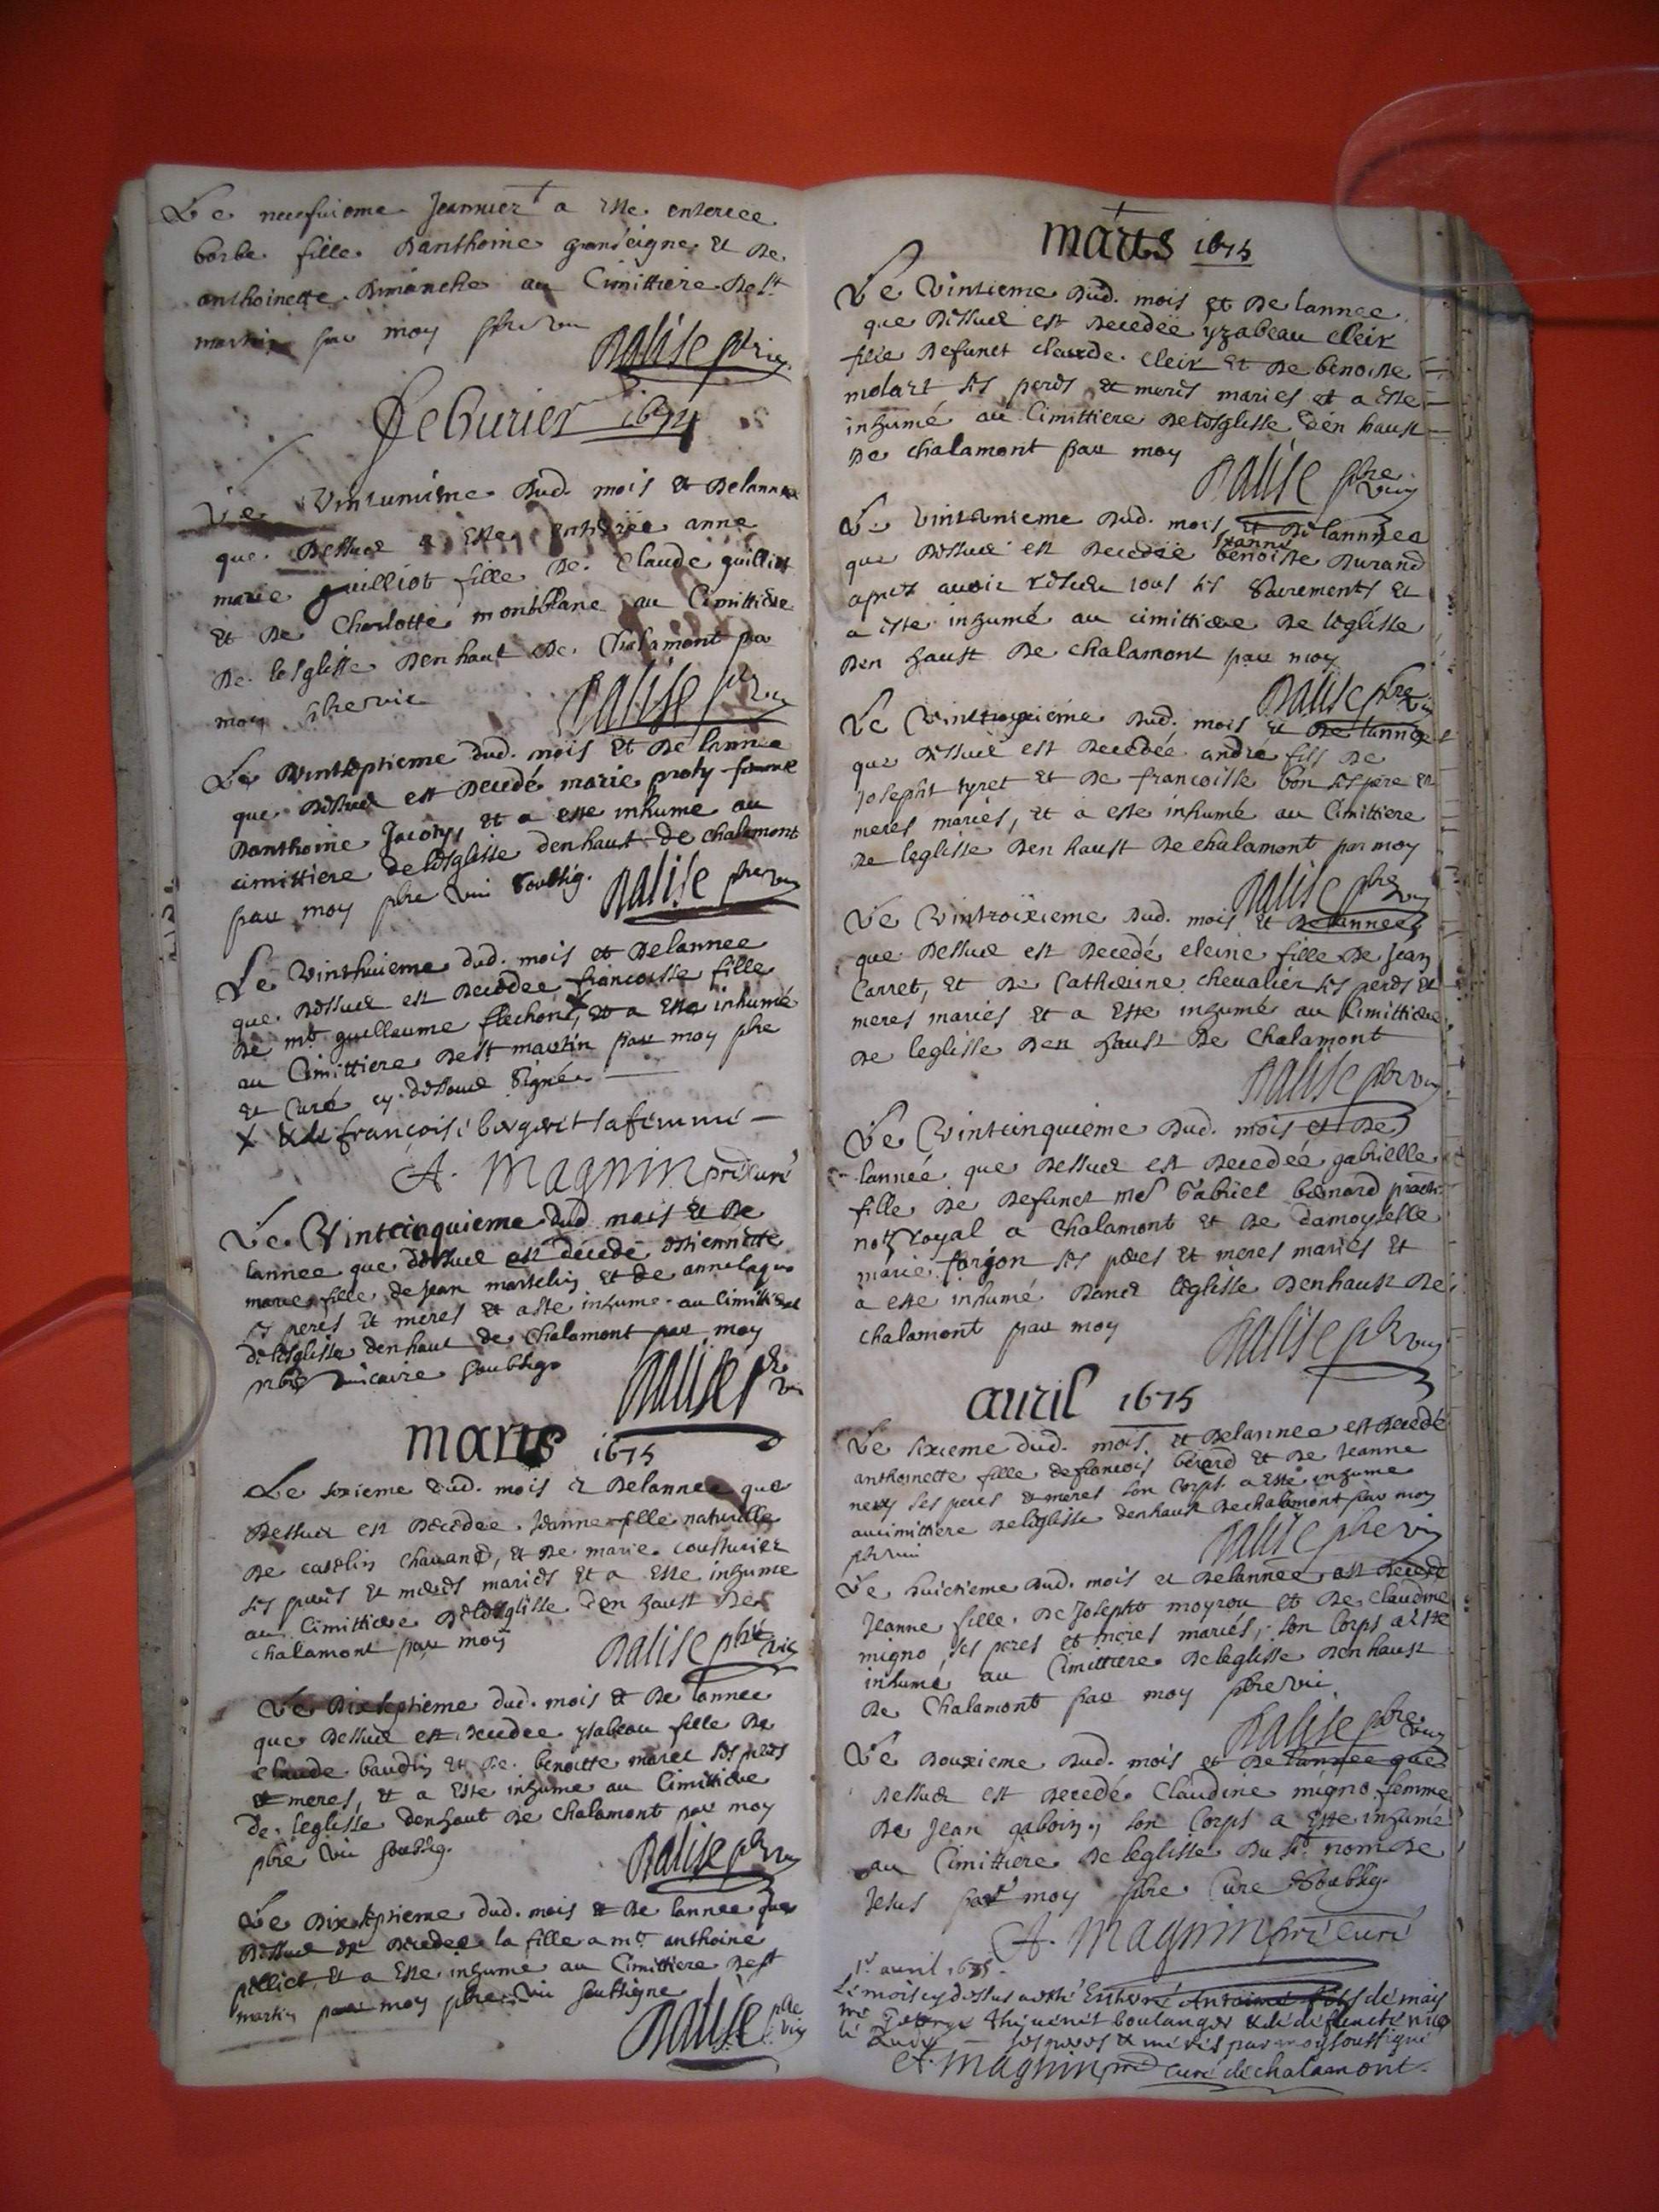 Le neufvieme Jeannier a este enterree
barbe fille Danthoine grandeigne et De
anthoinette Dimanche au Cimittiere De st
martin par moy pbre vic
Dalise pbre vic
feburier 1674
Le Vintunieme Dud. mois et De lannee
que Dessus a Este enterree anne
marie guilliot fille De Claude guilliot
et De Charlotte montblane au Cimittiere
De lesglisse Den haut De Chalamont par
moy pbre vic
Dalise pbre vic
Le Vintseptieme dud. mois et De lannee
que Dessus est Decedé marie proty femme
Danthoine Jacoty, et a este inhume au
cimittiere de lesglisse denhaut de chalamont
par moy pbre vic soubsig.
Dalise pbre vic
Le Vinthuieme dud. mois et De lannee
que Dessus est Decedee francoisse fille
De mtre guilleaume flechon, et a Este inhumé
au Cimittiere De st martin par moy pbre
et Curé cy dessoub Signé
X & de françoise bergeret sa femme
A. Magnin pre Curé
Le Vintcinquieme Dud mois et De
lannee que dessus est décédé estiennette
marie fille de Jean marselin et de anne laque
ses peres et meres et a este inhume au Cimittiere
de lesglisse denhaut de Chalamont par moy
pbre vicaire soubsig
Dalise pbre vic
mars 1675
Le sixieme Dud. mois et De lannee que
Dessus est Decedee Jeanne fille naturelle
De catelin Chavand, et De marie cousturier
ses peres et meres mariés et a Este inhume
au Cimittiere De lesglisse Den haust De
Chalamont par moy
Dalise pbre vic
Le Dixseptieme dud. mois et De lannee
que Dessus est Decedee ysabeau fille De
Claude baudin et De benoitte maret ses peres
et meres, et a Este inhume au Cimittiere
De leglisse denhaut De Chalamont par moy
pbre vic soubsig.
Dalise pbre vic
Le Dixseptieme dud. mois et De lannee que
Dessus est Decedee la fille a mtre anthoine
pelliet et a Este inhumé au Cimittiere De st
martin par moy pbre vic soubsigne
Dalise pbre vic
mars 1675
Le Vintieme Dud. mois et De lannee
que Dessus est Decedée yzabeau cleir
fille Defunct claude cleir et De benoiste
molart ses peres et meres mariés et a este
inhumé au Cimittiere De lesglisse Den haust
De chalamont par moy
Dalise pbre vic
Le Vintunieme Dud. mois et De lannnee
que Dessus est Decedée Jeanne benoiste Durand
aprez avoir resceu tous ses Sacrements et
a este inhumé au cimittiere De leglisse
Den haust De chalamont par moy
Dalise pbre vic
Le Vintroyzieme Dud. mois et De lannee
que Dessus est Decedée andre fils De
Josepht tyret et De francoisse bon ses pere et
meres mariés, et a este inhumé au Cimittiere
De leglisse Den haust De chalamont par moy
Dalise pbre vic
Le Vintroixieme Dud. mois et De lannee
que Dessus est Decedé eleine fille De Jean
Carret, et De Catherine chevalier ses peres et
meres mariés et a Este inhumé au Cimittiere
De leglisse Den haust De Chalamont
Dalise pbre vic
Le Vintcinquieme Dud. mois et De
lannée que Dessus est Decedée gabrielle
fille De Defunct mes Gabriel bernard
nott royal a Chalamont et De damoyselle
marie forgon ses peres et meres mariés et
a este inhumé Dans leglisse Denhaust De
chalamont par moy
Dalise pbre vic
auril 1675
Le sixieme dud. mois et De lannee est Decedé
anthoinette fille de francois bérard et De Jeanne
nevy ses peres et meres son Corps a Esté inhume
au cimittiere De leglisse denhaust De chalamont par moy
pbre vic
Dalise pbre vic
Le huictieme Dud. mois et De lannée est Decedé
Jeanne fille De Josepht moyrou et De Claudine
migno ses peres et meres mariés, son Corps a Este
inhumé au Cimittiere De leglisse Denhaust
De Chalamont par moy pbre vic
Dalise pbre vic
Le Douxieme Dud. mois et De lannee que
Dessus est Decedé Claudine migno femme
De Jean gaboin, son Corps a Este inhumé
au Cimittiere De leglisse Du st nom De
Jesus par moy pbre Cure Soubsig.
A. Magnin pre Curé
1r avril 1675
Le mois cy dessus a esté Enterré Antoine fils de mais
tre George Thiuenet boulanger & de defuncte
ses peres & meres par moy soussigné
A. Magnin pre curé de chalamont